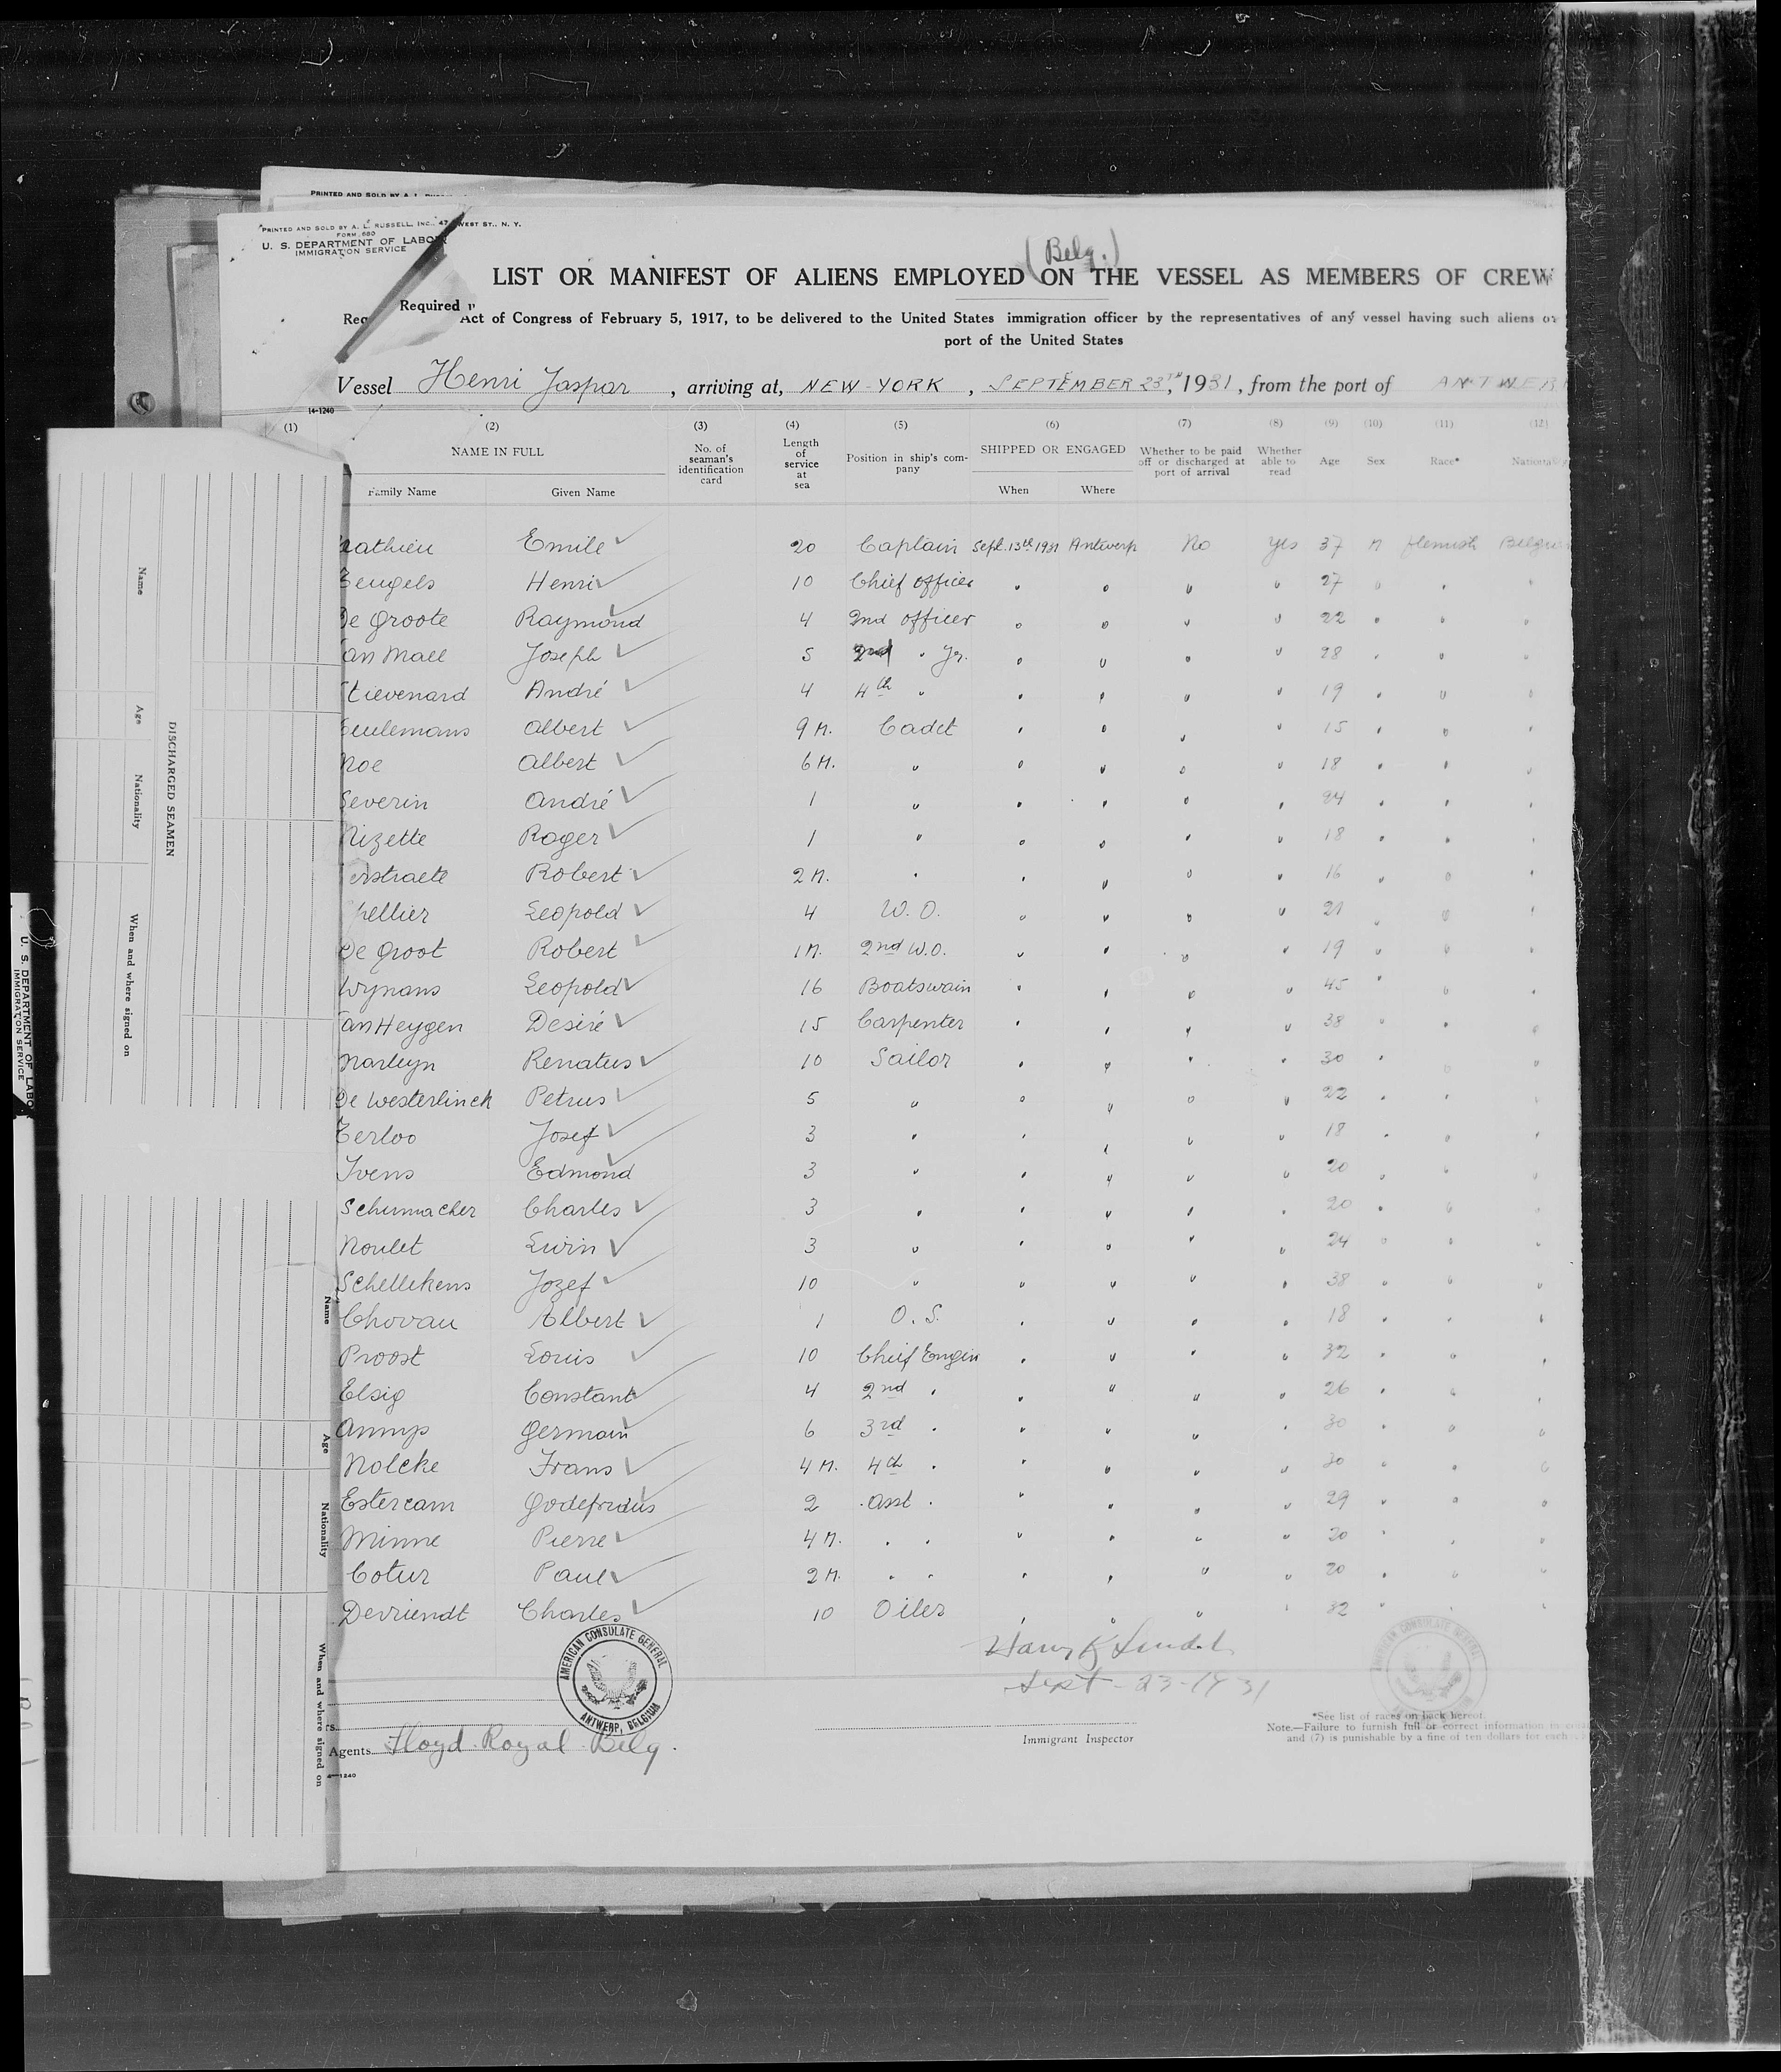 PRINTED AND SOLD BY A. L.
PRINTED AND SOLD BY A. L. RUSSELL, INC., 47 WEST ST., N. Y.
FORM 680
U. S. DEPARTMENT OF LABOR
IMMIGRATION SERVICE
(Belg.)
LIST OR MANIFEST OF ALIENS EMPLOYED ON THE VESSEL AS MEMBERS OF CREW
Required
Act of Congress of February 5, 1917, to be delivered to the United States immigration officer by the representatives of any vessel having such aliens
port of the United States
Vessel Henri Jaspar, arriving at, NEW-YORK, SEPTEMBER 23TH, 1931, from the port of ANTWER
14-1240
(1) (2) (3) (4) (5) (6) (7) (8) (9) (10) (11) (12)
NAME IN FULL No. of seaman's identification card Length of service at sea Position in ship's company SHIPPED OR ENGAGED Whether to be paid off or discharged at port of arrival Whether able to read Age Sex Race* Nationality
Family Name Given Name When Where
athieu Emile 20 Captain Sept. 13th 1931 Antwerp No Yes 37 M flemish Belgia
Teugels Henri 10 Chief officer " " " " 27 " " "
De Groote Raymond 4 2nd officer " " " " 22 " " "
an Mall Joseph 5 2nd " Jr. " " " " 28 " " "
Stievenard André 4 4th " " " " " 19 " " "
eulemans Albert 9 M. Cadet " " " " 15 " " "
Noe Albert 6 M. " " " " " 18 " " "
Severin André 1 " " " " " 24 " " "
Nizette Roger 1 " " " " " 18 " " "
erstraete Robert 2 M. " " " " " 16 " " "
pellier Leopold 4 W. O. " " " " 21 " " "
De Groot Robert 1 M. 2nd W.O. " " " " 19 " " "
Wynans Leopold 16 Boatswain " " " " 45 " " "
an Heygen Desiré 15 Carpenter " " " " 38 " " "
Marleyn Renatus 10 Sailor " " " " 30 " " "
De Westerlinck Petrus 5 " " " " " 22 " " "
Terloo Josef 3 " " " " " 18 " " "
Ivens Edmond 3 " " " " " 20 " " "
Schumacher Charles 3 " " " " " 20 " " "
Noulet 3 " " " " " 24 " " "
Schellekens Jozef 10 " " " " " 38 " " "
Chovau Albert 1 O. S. " " " " 18 " " "
Proost Louis 10 Chief Engin " " " " 32 " " "
Elsig Constant 4 2nd " " " " " 26 " " "
Annys Germain 6 3rd " " " " " 30 " " "
Nolcke Frans 4 M. 4th " " " " " 30 " " "
Estercam Godefridus 2 Asst " " " " " 29 " " "
Minne Pierre 4 M. " " " " " " 20 " " "
Cotur Paul 2 M. " " " " " " 20 " " "
Devriendt Charles 10 Oiler " " " " 32 " " "
Harry
Sept-23-1931
AMERICAN CONSULATE GENERAL
ANTWERP, BELGIUM
AMERICAN CONSULATE GENERAL
Agents Lloyd Royal Belg.
Immigrant Inspector
*See list of races on back hereof.
Note.—Failure to furnish full or correct information in
and (7) is punishable by a fine of ten dollars for each
1240
DISCHARGED SEAMEN
Name
Age
Nationality
When and where signed on
Name
Age
Nationality
When and where signed on
U. S. DEPARTMENT OF LABO
IMMIGRATION SERVICE